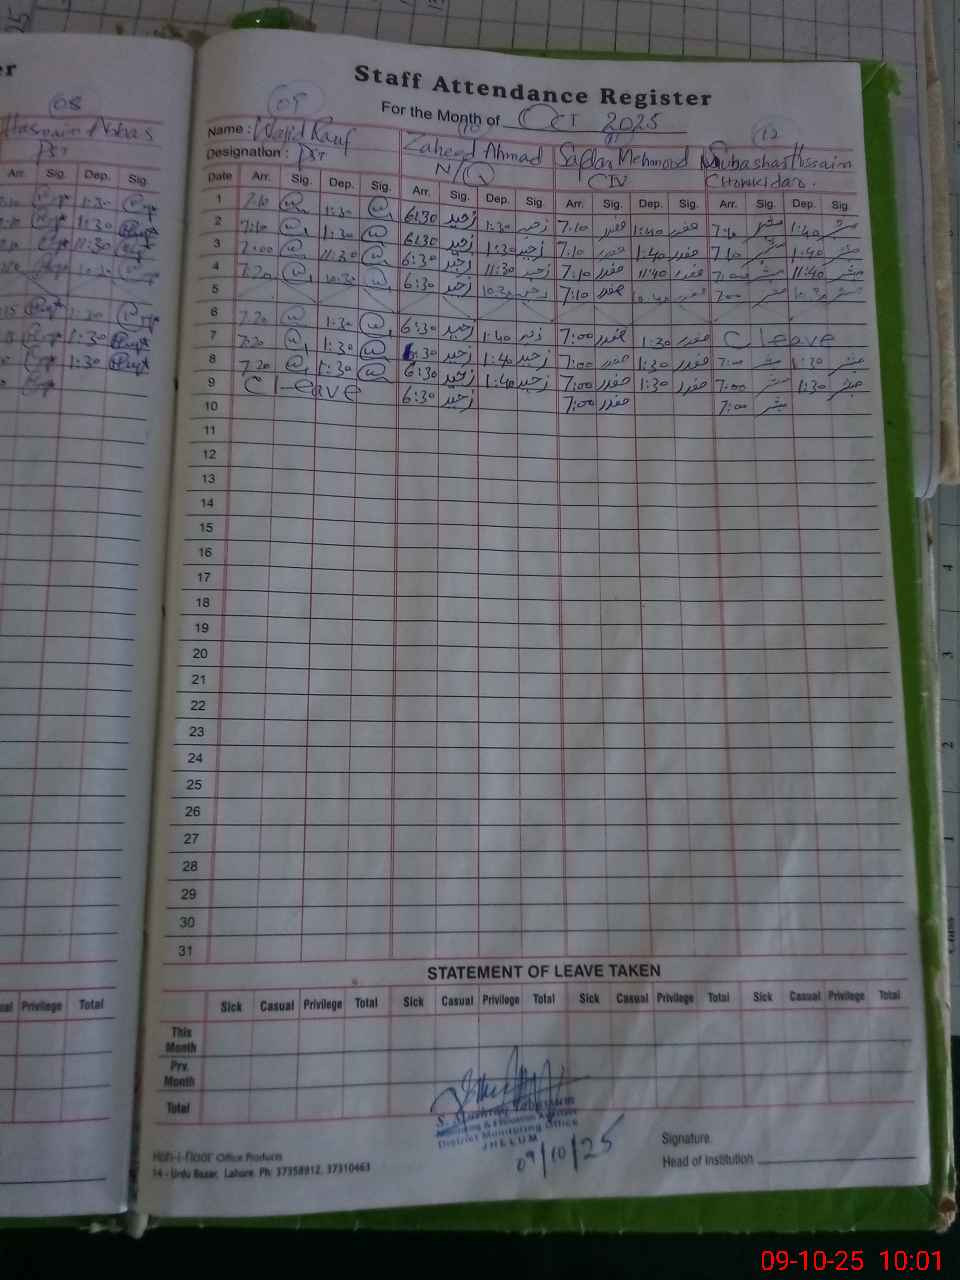 Staff Attendance Register
For the Month of Oct 2025
08
09
10
11
12
Hasnain Abbas
PST
Name : Wajid Rauf Zaheed Ahmad Safdar Mehmood Mubashar Hussain
Designation : PST N/Q C/IV Chowkidar.
Arr. Sig. Dep. Sig.
Date Arr. Sig. Dep. Sig. Arr. Sig. Dep. Sig. Arr. Sig. Dep. Sig. Arr. Sig. Dep. Sig.
1:30 1 7:10 1:30 6:30 زحید 1:30 زحید 7:10 صفدر 1:40 صفدر 7:10 مبشر 1:40 مبشر
1:30 2 7:10 1:30 6:30 زحید 1:30 زحید 7:10 صفدر 1:40 صفدر 7:10 مبشر 1:40 مبشر
11:30 3 7:00 11:30 6:30 زحید 11:30 زحید 7:10 صفدر 11:40 صفدر 7:00 مبشر 11:40 مبشر
10:30 4 7:20 10:30 6:30 زحید 10:30 زحید 7:10 صفدر 10:40 صفدر 7:00 مبشر 10:30 مبشر
5
1:30 6 7:20 1:30 6:30 زحید 1:40 زحید 7:00 صفدر 1:30 صفدر C leave
1:30 7 7:20 1:30 6:30 زحید 1:40 زحید 7:00 صفدر 1:30 صفدر 7:00 مبشر 1:30 مبشر
1:30 8 7:20 1:30 6:30 زحید 1:40 زحید 7:00 صفدر 1:30 صفدر 7:00 مبشر 1:30 مبشر
9 C Leave 6:30 زحید 7:00 صفدر 7:00 مبشر
10
11
12
13
14
15
16
17
18
19
20
21
22
23
24
25
26
27
28
29
30
31
STATEMENT OF LEAVE TAKEN
Privilege Total
Sick Casual Privilege Total Sick Casual Privilege Total Sick Casual Privilege Total Sick Casual Privilege Total
This Month
Prv. Month
Total
District Monitoring Office
JHELUM
09/10/25
Office Products
14 - Urdu Bazar, Lahore. Ph: 37358912, 37310463
Signature.
Head of Institution
09-10-25 10:01